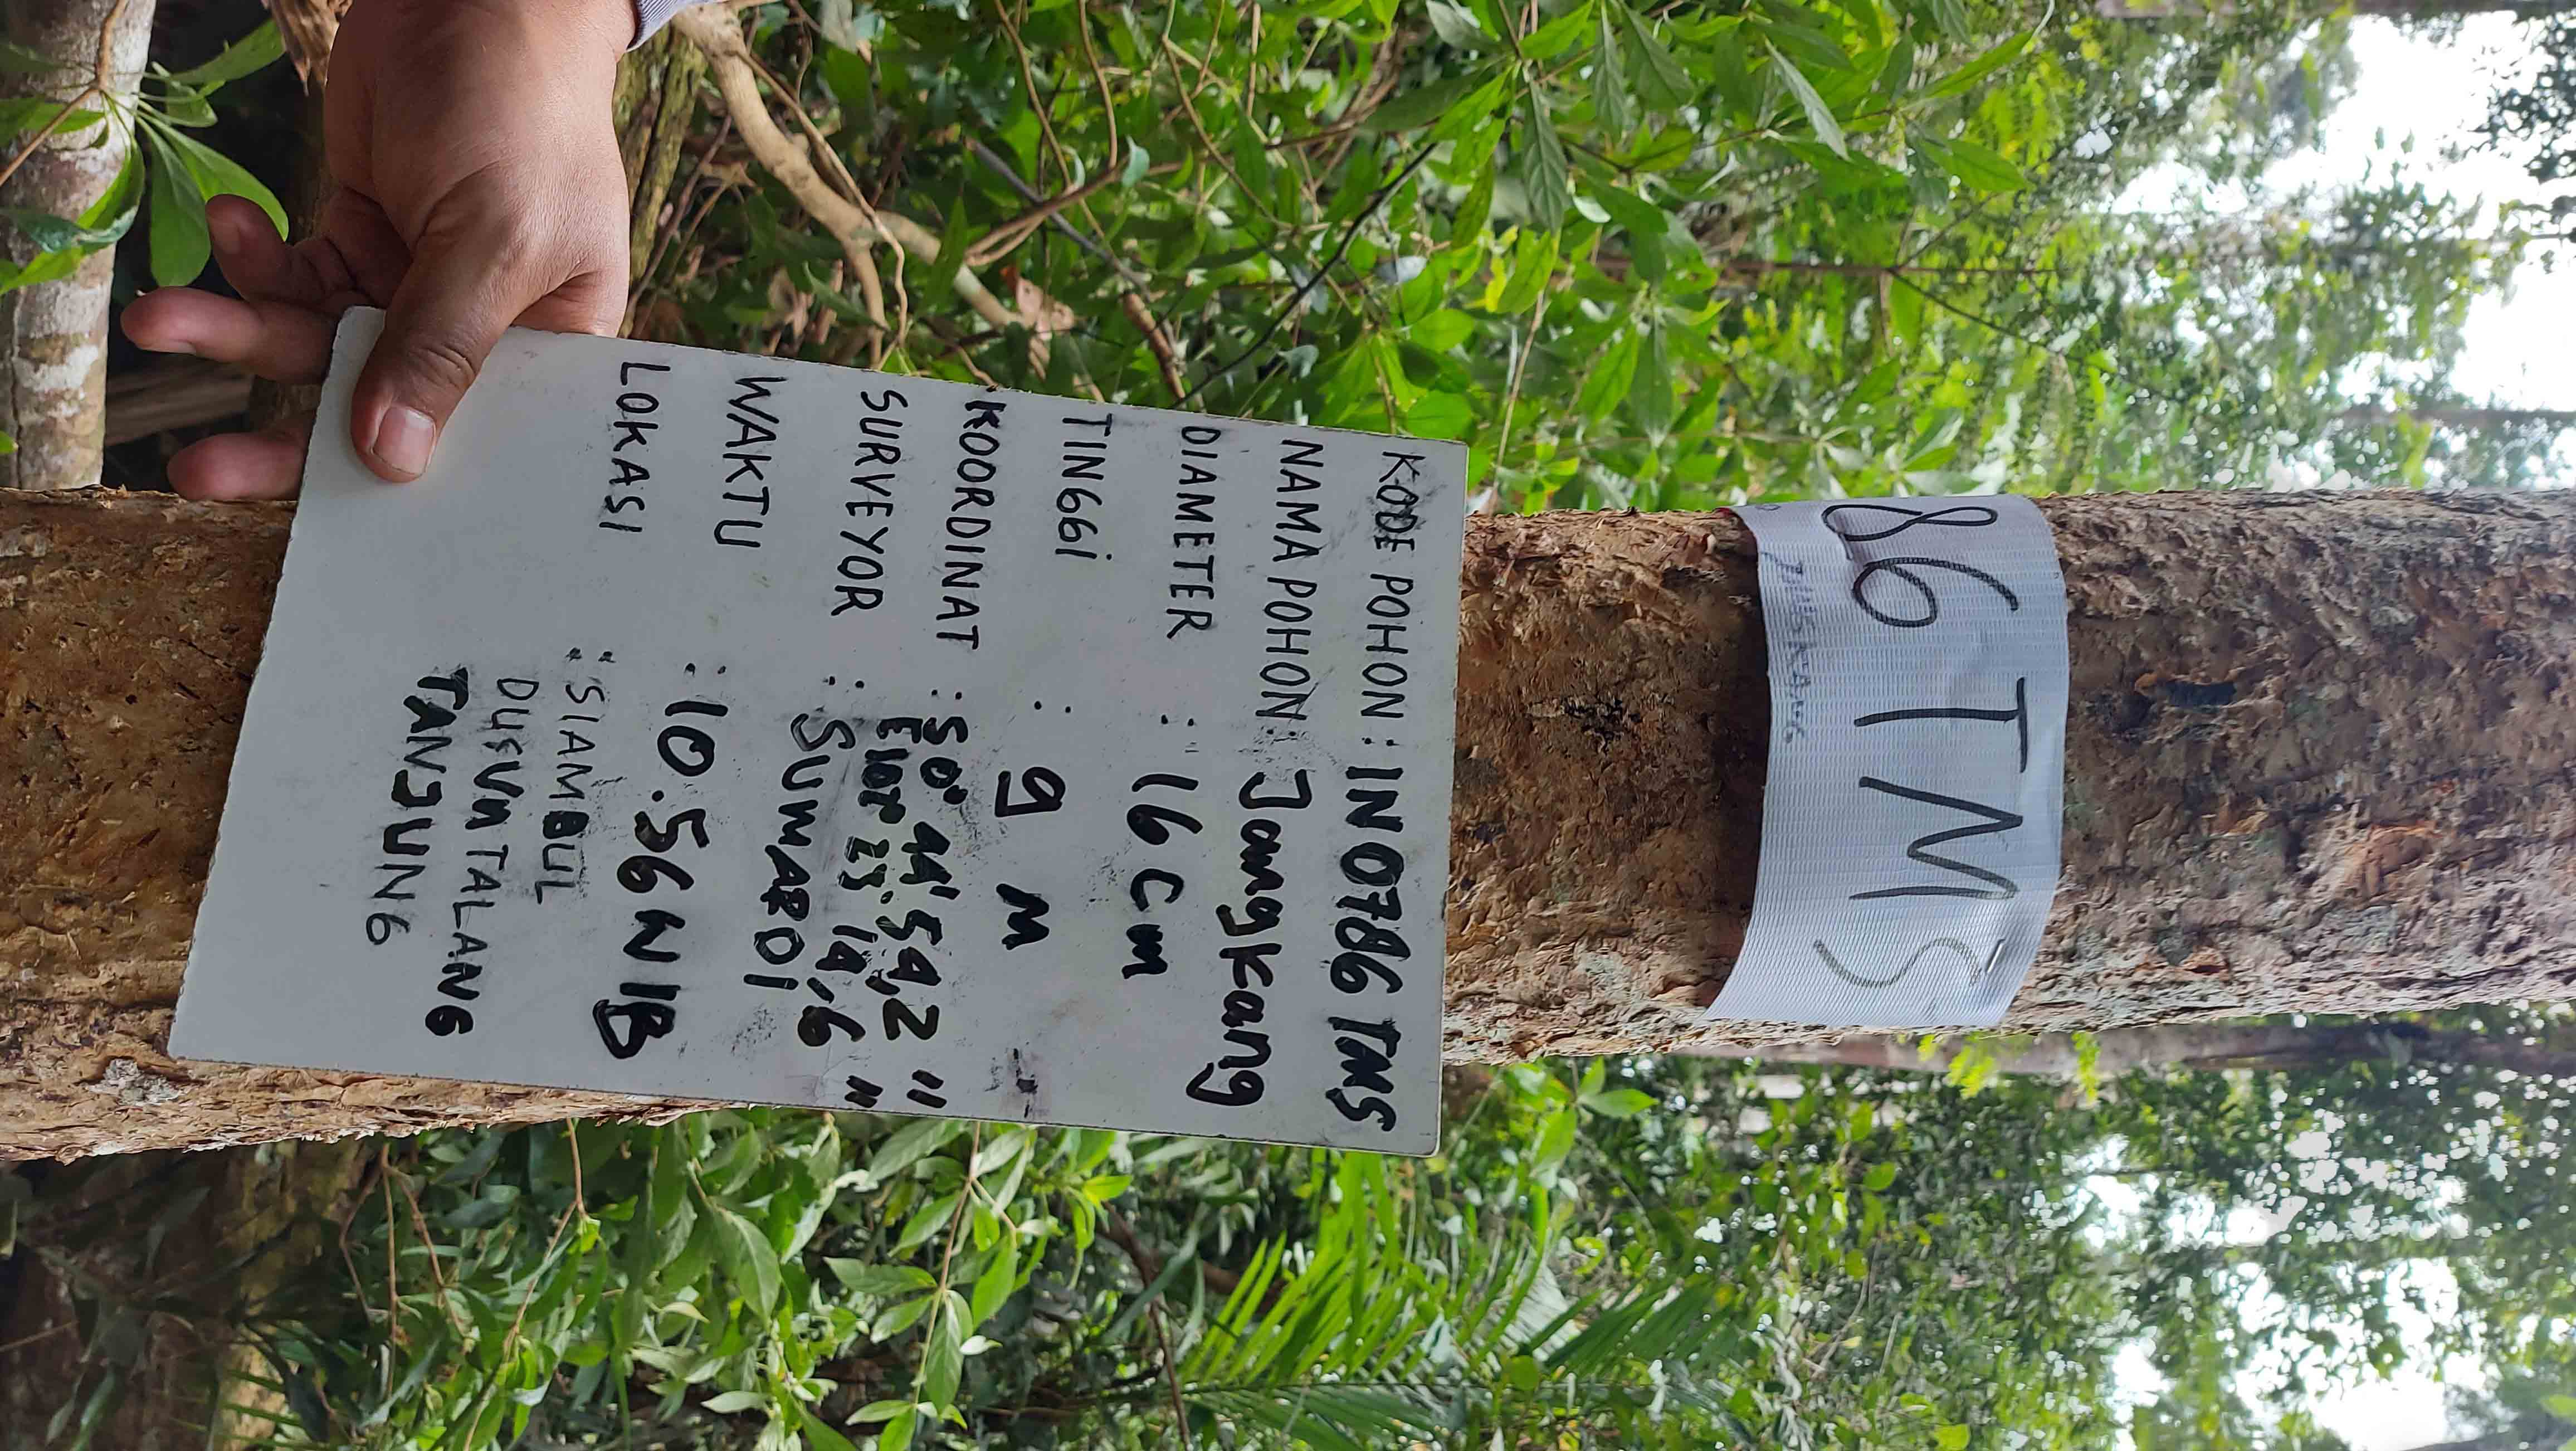 86 TMS
JANGKANG
KODE POHON : IN0786 TMS
NAMA POHON : Jangkang
DIAMETER : 16 Cm
TINGGI : 9 M
KOORDINAT : S 0° 44' 54,2 "
E 102° 23' 14,6 "
SURVEYOR : SUMARDI
WAKTU : 10.56 WIB
LOKASI : SIAMBUL
DUSUN TALANG
TANJUNG